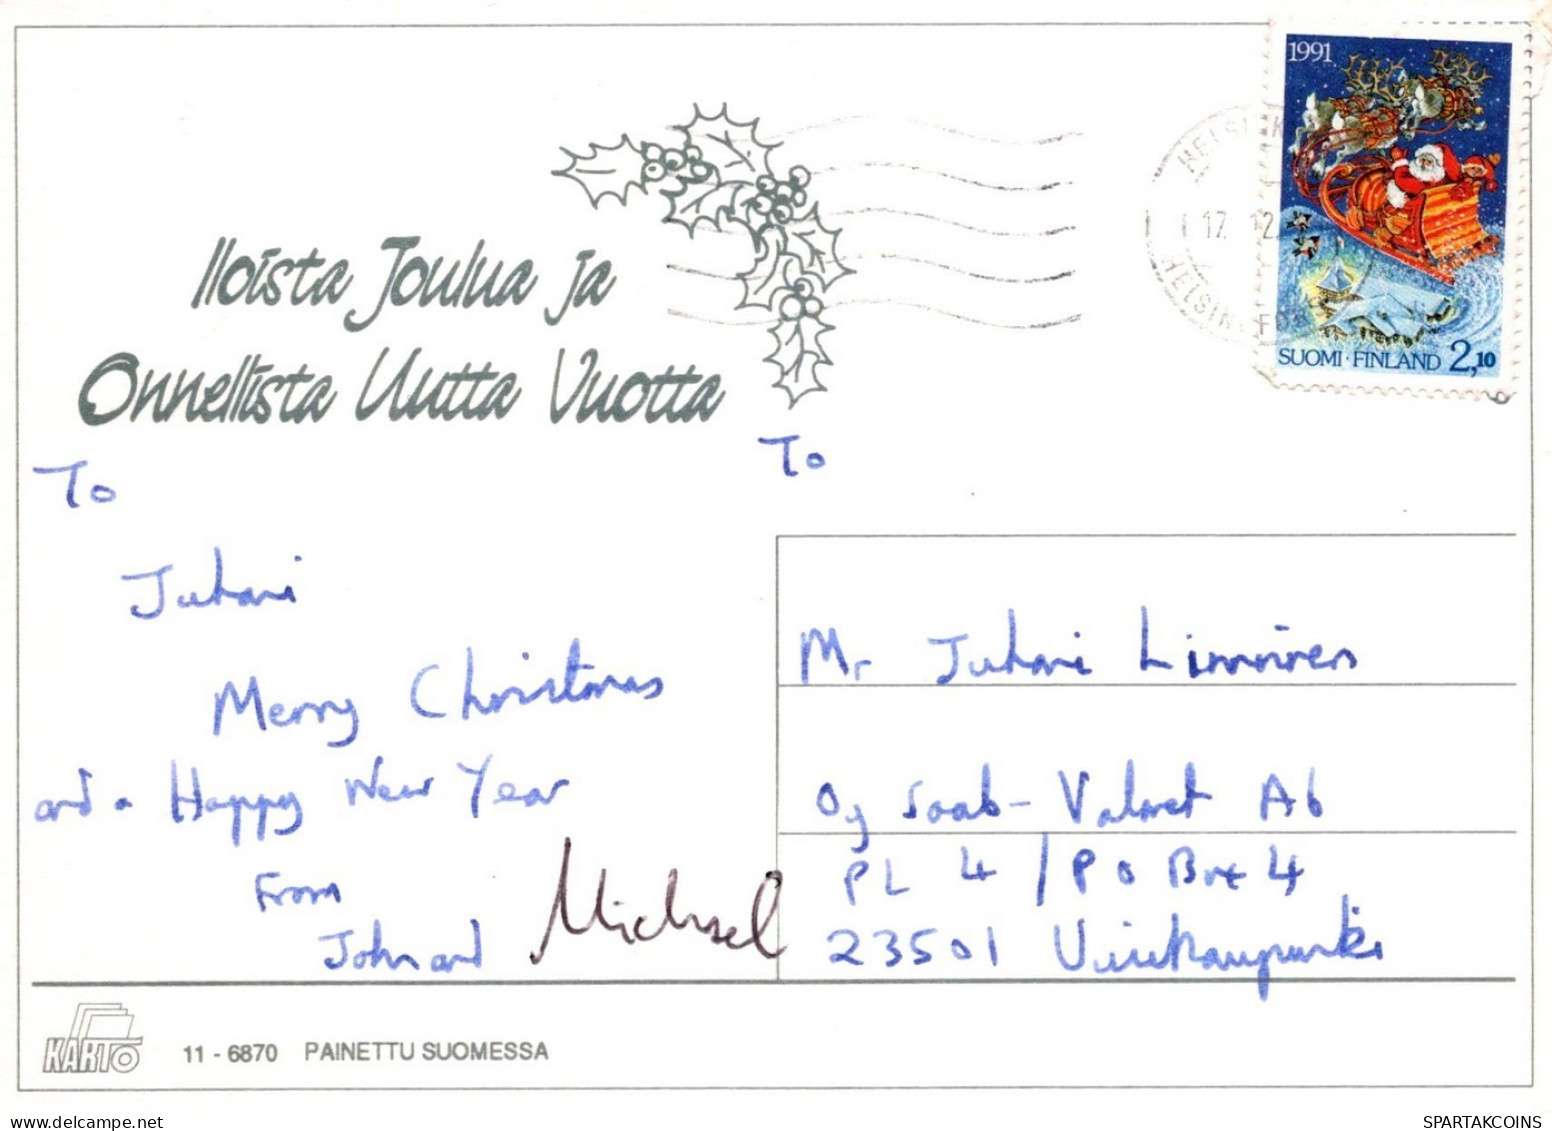 1991
HELSINK
17. 12.
HELSINGFO
SUOMI · FINLAND 2,10
Iloista Joulua ja
Onnellista Uutta Vuotta
To
Juhani
Merry Christmas
and a Happy New Year
From
John and Michael
To
Mr Juhani Linnoinen
Oy Saab-Valmet Ab
PL 4 / PO Box 4
23501 Uusikaupunki
KARTO 11 - 6870 PAINETTU SUOMESSA
SPARTAKCOINS